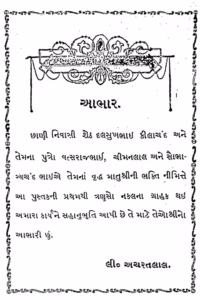 આભાર.
છાણી નિવાસી શેઠ દલસુખભાઇ દીલાચંદ અને
તેમના પુત્રો વત્સરાજભાઈ, ચીમનલાલ અને સૌભા-
ગ્યચંદ ભાઇએ તેમનાં વૃદ્ધ માતુશ્રીની ભક્તિ નીમિત્તે
આ પુસ્તકની પ્રથમથી ત્રણસો નકલના ગ્રાહક થઇ
અમારા કાર્યને સહાનુભૂતિ આપી છે તે માટે તેઓશ્રીનો
આભારી છું.
લી૦ અચરતલાલ.